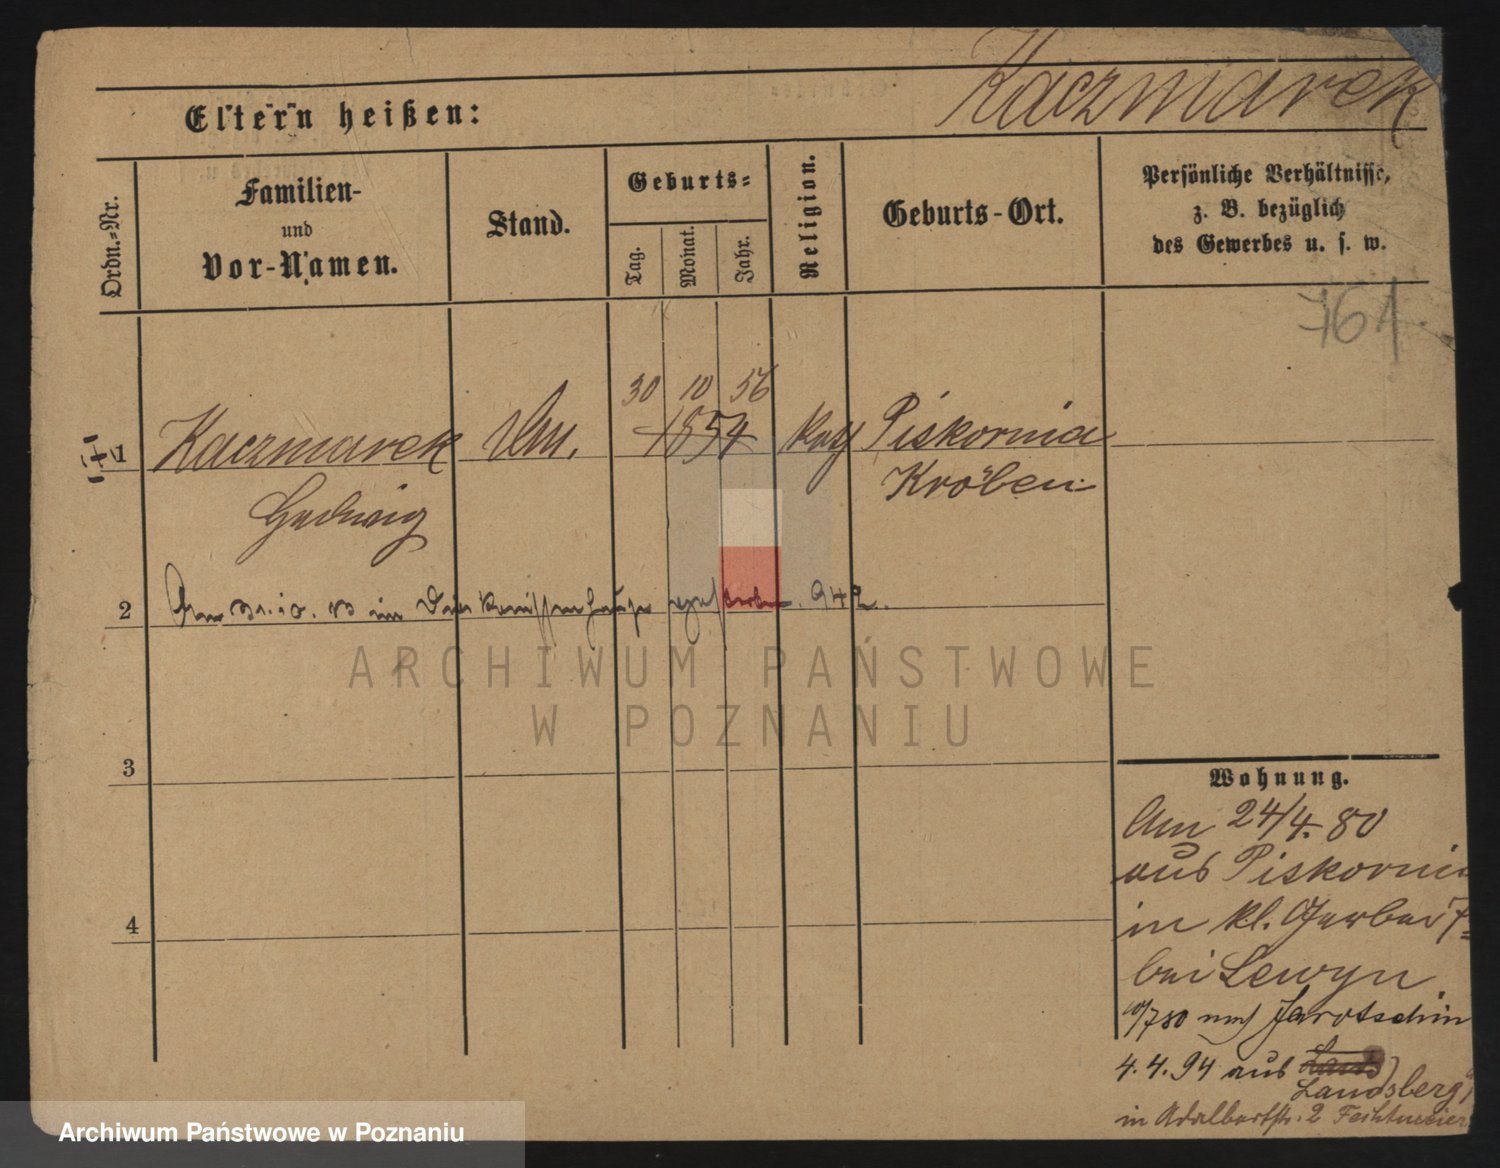 Kaczmarek
Eltern heißen:
Ordn.-Nr.
Familien-
und
Vor-Namen.
Stand.
Geburts-
Tag.
Monat.
Jahr.
Religion.
Geburts-Ort.
Persönliche Verhältnisse,
z. B. bezüglich
des Gewerbes u. s. w.
761
30 10 56
1 Kaczmarek Un. 1854 kath Piskornia
Kröben
Hedwig
2 Am 31.10. in Diakonissenhause gestorben. 942.
ARCHIWUM PAŃSTWOWE
W POZNANIU
3
Wohnung.
Am 24/4. 80
aus Piskornia
in kl. Gerberst 7
bei Lewyn
10/7 80 nach Jarotschin
4. 4. 94 aus
Landsberg
in Adalbertstr. 2
4
Archiwum Państwowe w Poznaniu